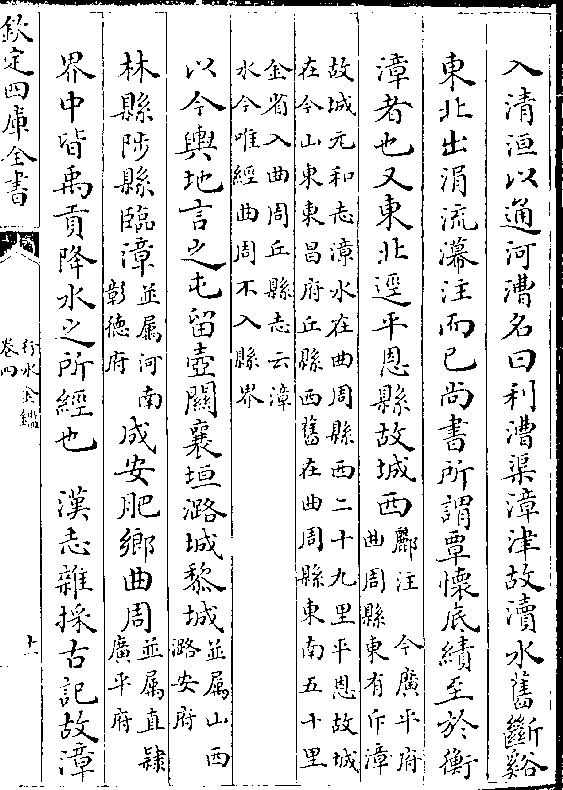 入清洹以通河漕名曰利漕渠漳津故瀆水舊斷谿
東北出涓流瀑注而已尚書所謂覃懷底績至於衡
漳者也又東北逕平恩縣故城西酈注　今廣平府
曲周縣東有斥漳
故城元和志漳水在曲周縣西二十九里平恩故城
在今山東東昌府丘縣西舊在曲周縣東南五十里
金省入曲周丘縣志云漳
水今唯經曲周不入縣界
以今輿地言之屯留壺關襄垣潞城黎城並屬山西
潞安府
林縣陟縣臨漳並屬河南
彰德府
成安肥鄉曲周並属直隸
廣平府
界中皆禹貢降水之所經也　漢志雜採古記故漳
欽定四庫全書
行水金鑑
卷四
十一